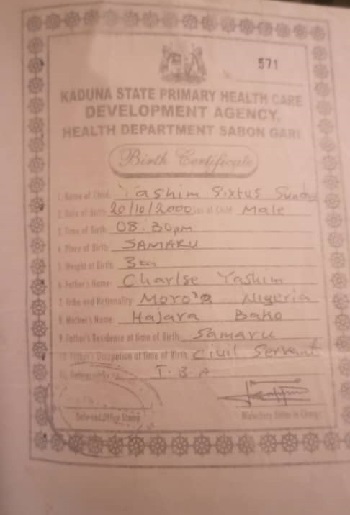 571
KADUNA STATE PRIMARY HEALTH CARE
DEVELOPMENT AGENCY,
HEALTH DEPARTMENT SABON GARI
Birth Certificate
1. Name of Child Yashim Sixtus Sunday
2. Date of Birth 20/10/2000 Sex of Child Male
3. Time of Birth 08:30pm
4. Place of Birth SAMARU
5. Weight at Birth
6. Father's Name: Charlse Yashim
7. Tribe and Nationality Moro'a Nigeria
8. Mother's Name: Hajara Bako
9. Father's Residence at time of Birth Samaru
10. Father's Occupation at time of Birth Civil Servant
T.B.A
Date and Office Stamp